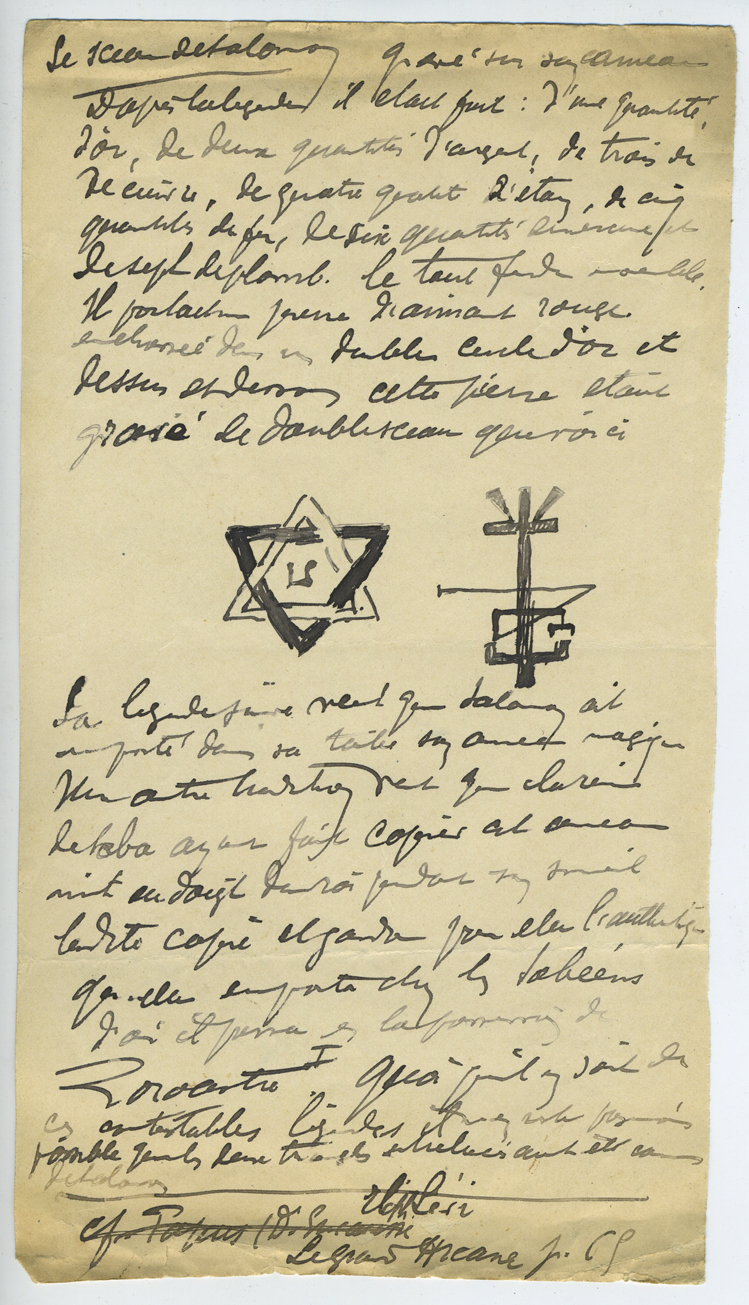 Le sceau de Salomon gravé sur son anneau
D'après la légende il était fait : d'une quantité
d'or, de deux quantités d'argent, de trois de
de cuivre, de quatre quatit d'étain, de cinq
quantités de fer, de six quantités de mercure et
de sept de plomb. Le tout fondu ensemble.
Il portait une pierre d'aimant rouge
enchassée dans un double cercle d'or et
dessus et dessous cette pierre était
gravé le double sceau que voici
La légende juive veut que Salomon ait
emporté dans sa tombe son anneau magique
Une autre tradition veut que la reine
de Saba ayant fait copier cet anneau
mit au doigt du roi pendant son sommeil
ladite copie et garda pour elle l'authentique
qu'elle emporta chez les Sabéens
d'où il passa en la possession de
Zoroastre I. Quoi qu'il en soit de
ces contestables légendes il n'en reste pas moins
probable que les deux tracés aient été connus
de Salomon
Eliph Lévi
cf. Papus (Dr Encausse
Le grand Arcane p. 65